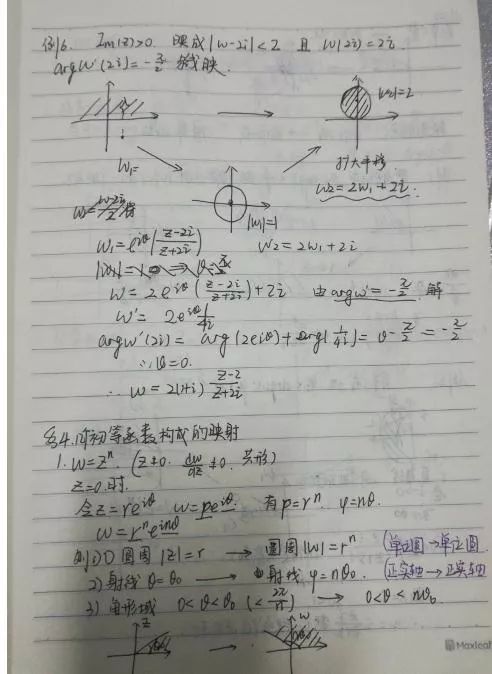 例6. Im(z)>0. 映成|w-2i|<2 且 w(2i)=2i.
argw'(2i)=-π/2 线映.
|w2|=2
扩大平移
w1=
w2=2w1+2i.
|w1|=1
w1=e^{iθ}(z-2i/z+2i) w2=2w1+2i
w=2e^{iθ}(z-2i/z+2i)+2i 由argw'=-π/2 解
w'=2e^{iθ}1/4i
argw'(2i)=arg(2e^{iθ})+arg(1/4i)=θ-π/2=-π/2
∴θ=0.
∴ w=2(1+i) z-2/z+2i
§4. 几个初等函数构成的映射
1. w=z^n. (z≠0. dw/dz≠0. 共形)
z=0.时.
令z=re^{iθ} w=ρe^{iφ}. 有ρ=r^n. φ=nθ.
w=r^n e^{inθ}
则1) 圆周|z|=r → 圆周|w|=r^n (单位圆→单位圆
2) 射线θ=θ0 → 射线φ=nθ0. (正实轴→正实轴
3) 角形域 0<θ<θ0 (<2π/n) → 0<θ<nθ0
z w
Maxleaf